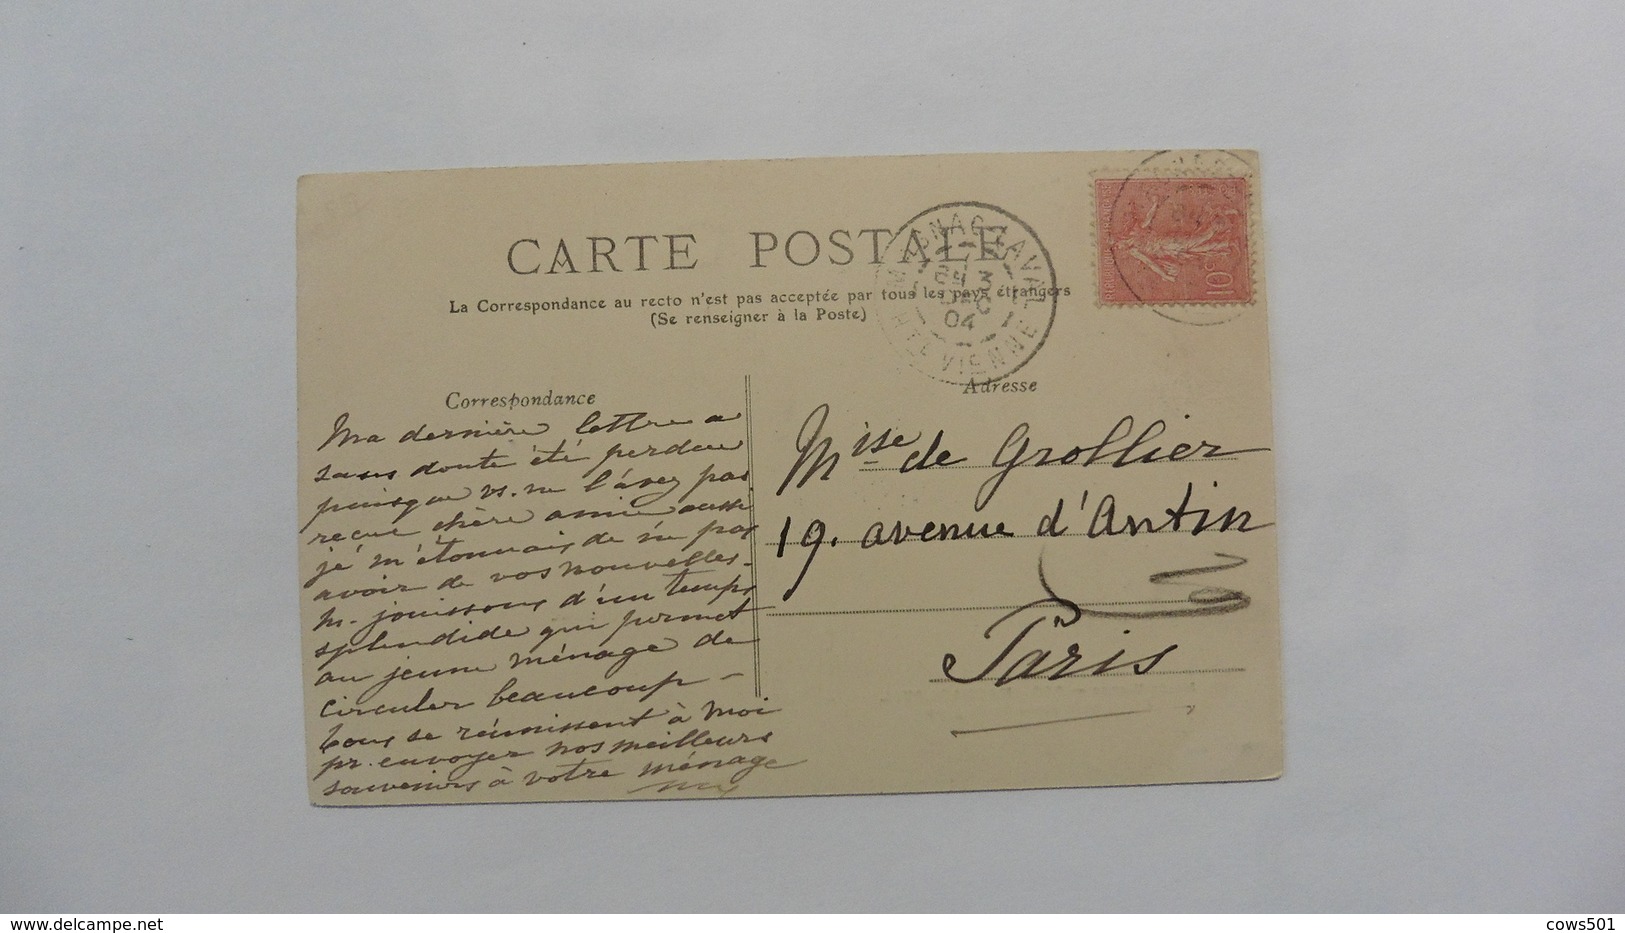 CARTE POSTALE
La Correspondance au recto n'est pas acceptée par tous les pays étrangers
(Se renseigner à la Poste)
MAGNAC-LAVAL
3
DEC
04
HTE VIENNE
REPUBLIQUE FRANCAISE
10c
Correspondance
Ma dernière lettre a
sans doute été perdue
puisque vs. ne l'avez pas
reçue chère amie aussi
je m'étonnais de n pas
avoir de vos nouvelles.
N. jouissons d'un temps
splendide qui permet
au jeune ménage de
circuler beaucoup -
Tous se réunissent à moi
pr. envoyer nos meilleurs
souvenirs à votre ménage
Adresse
Mise de Grollier
19. avenue d'Antin
Paris
www.delcampe.net
cows501